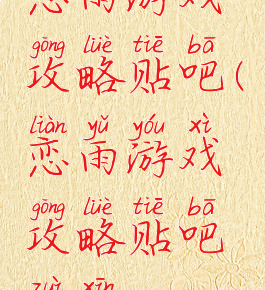 恋雨游戏
gōng lüè tiē bā
攻略贴吧(
liàn yǔ yóu xì
恋雨游戏
gōng lüè tiē bā
攻略贴吧
zuì xīn